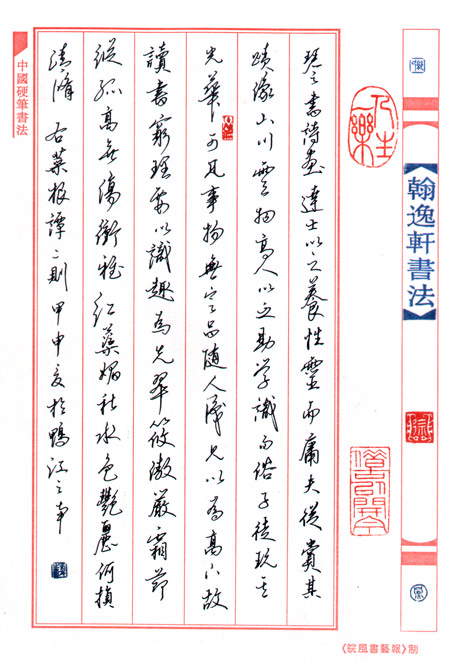 【翰逸軒書法】
琴書詩畫達士以之養性靈而庸夫從賞其
蹟像山川雲物高人以之助学識而俗子徒玩其
光華可見事物無定品随人識見以為高下故
讀書窮理要以識趣為先翠筱傲嚴霜節
縱孤高無傷衝雅红蕖媚秋水色艷麗何損
清脩 右菜根譚二則 甲申夏於鴨江之東
中國硬筆書法
《皖風書藝報》制